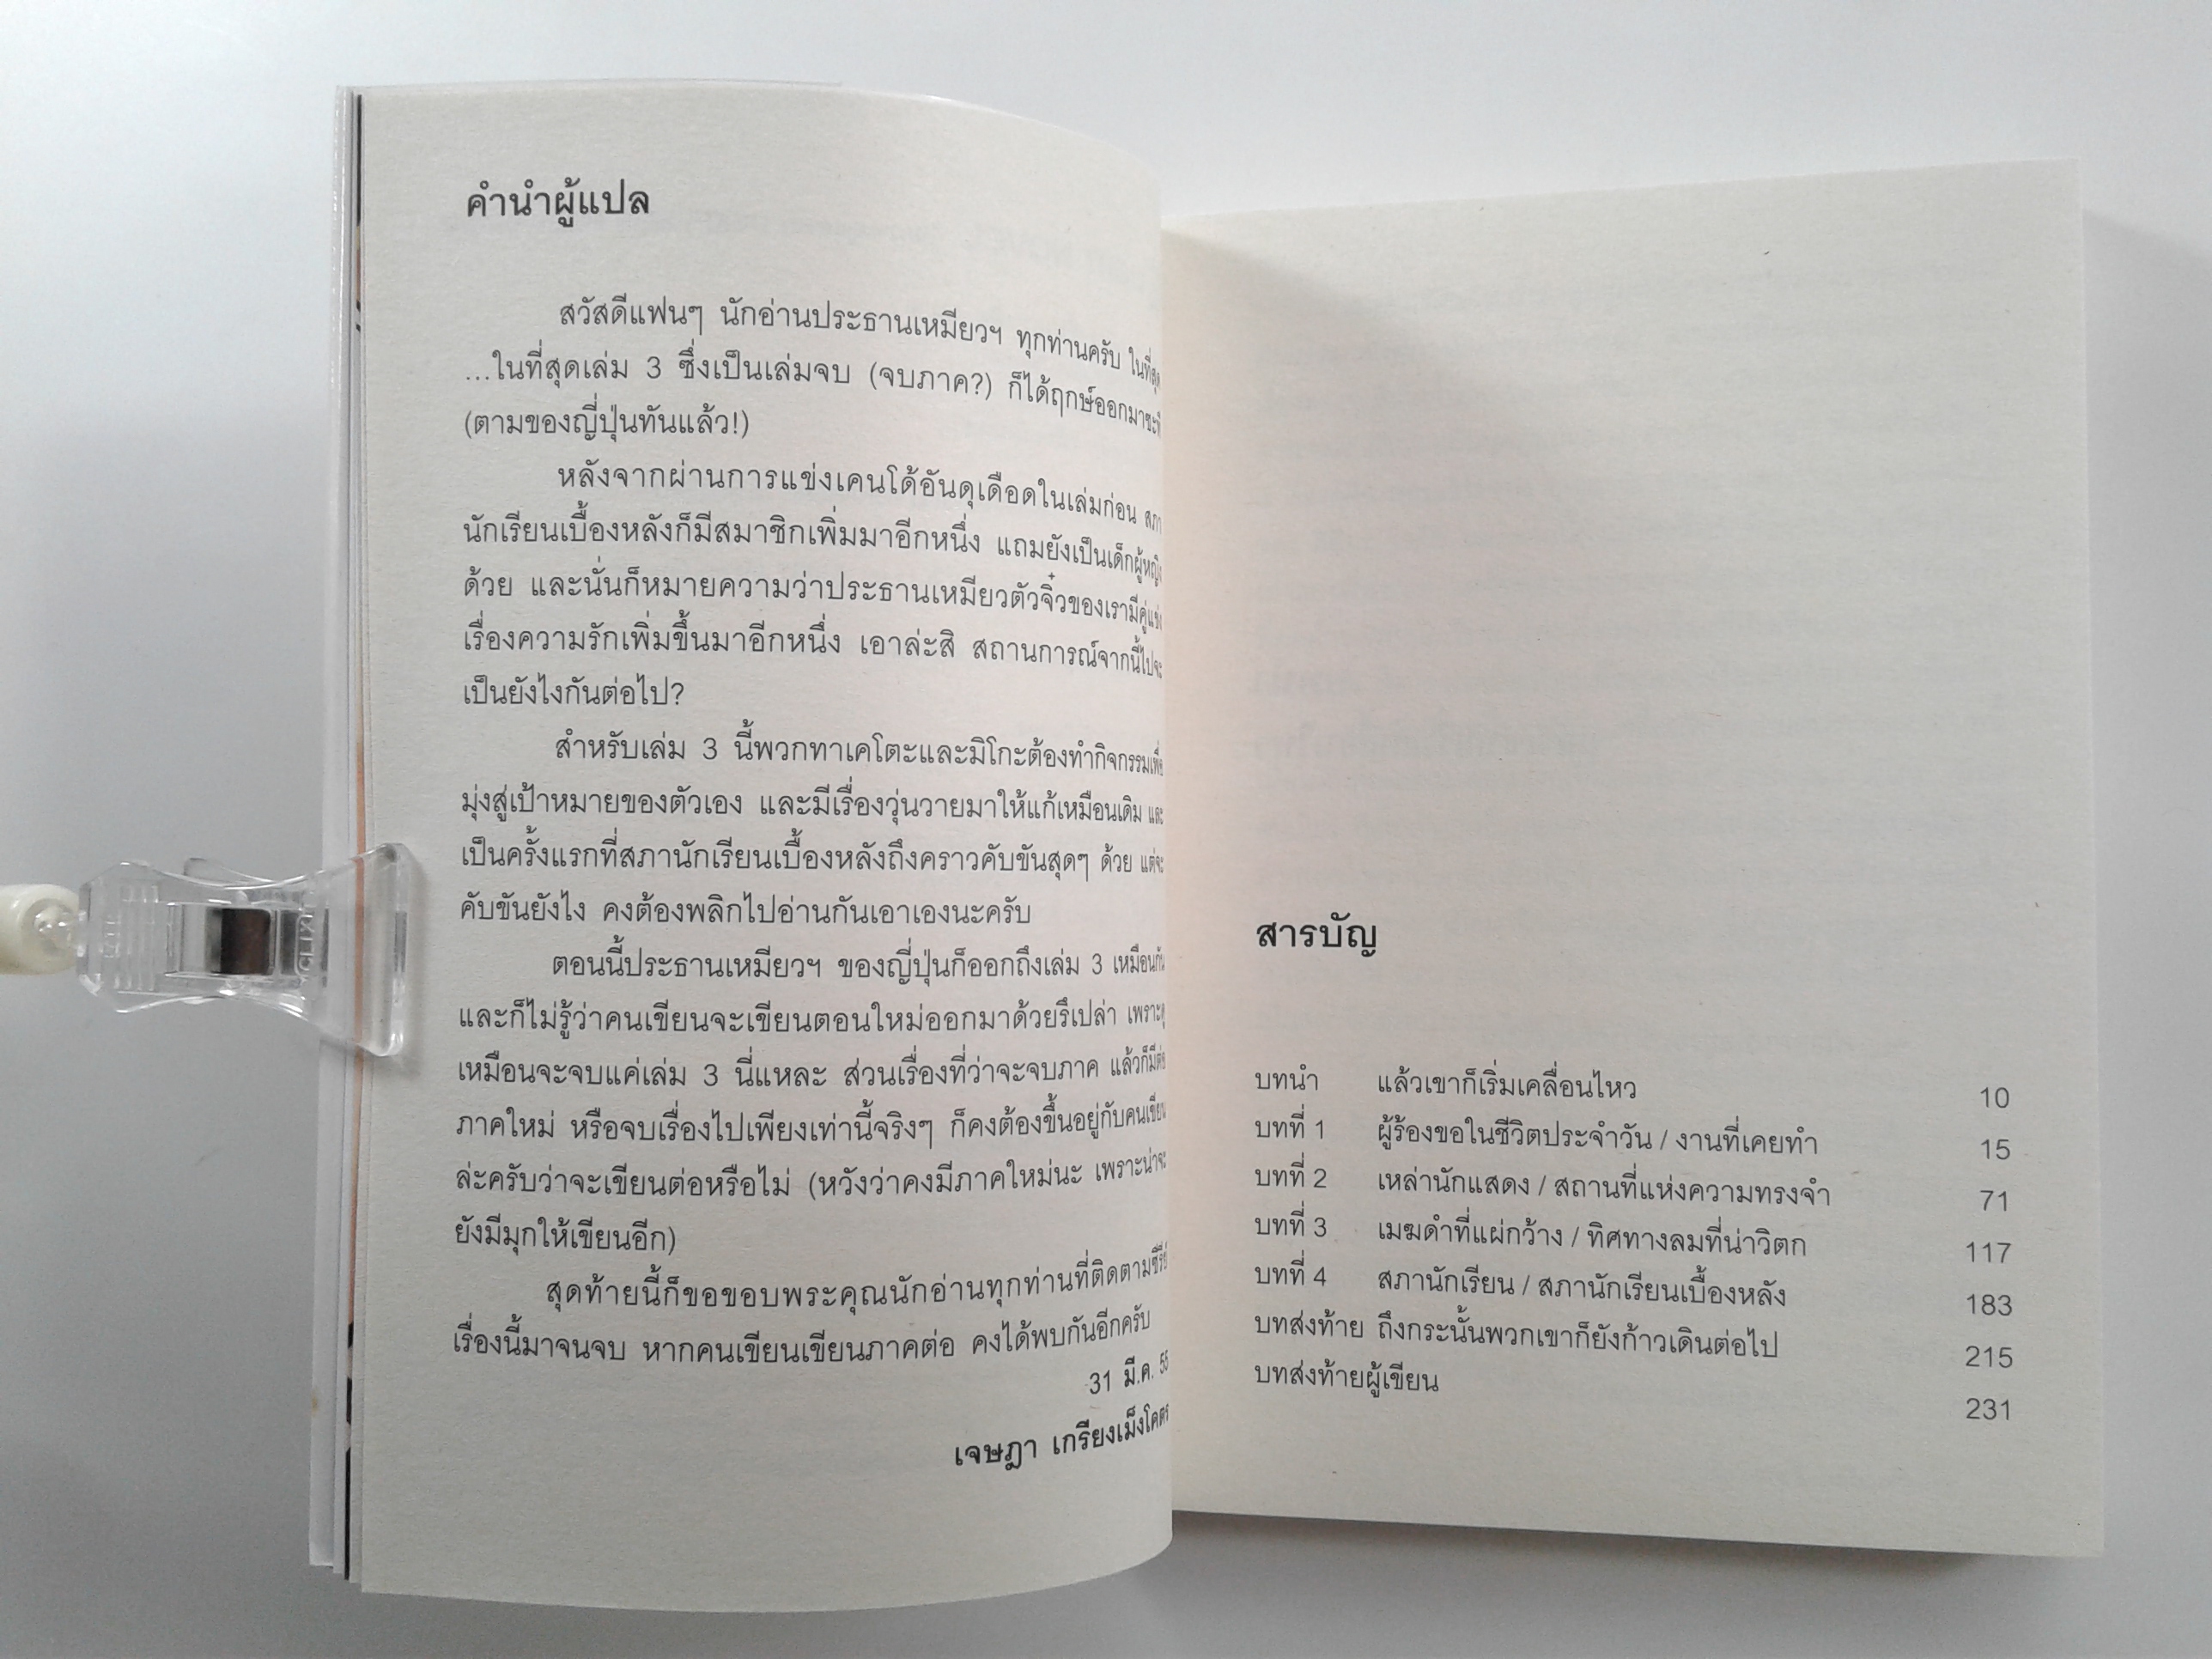 คำนำผู้แปล
สวัสดีแฟนๆ นักอ่านประธานเหมียวฯ ทุกท่านครับ ในที่สุด
...ในที่สุดเล่ม 3 ซึ่งเป็นเล่มจบ (จบภาค?) ก็ได้ฤกษ์ออกมาซะที
(ตามของญี่ปุ่นทันแล้ว!)
หลังจากผ่านการแข่งเคนโด้อันดุเดือดในเล่มก่อน สภา
นักเรียนเบื้องหลังก็มีสมาชิกเพิ่มมาอีกหนึ่ง แถมยังเป็นเด็กผู้หญิง
ด้วย และนั่นก็หมายความว่าประธานเหมียวตัวจิ๋วของเรามีคู่แข่ง
เรื่องความรักเพิ่มขึ้นมาอีกหนึ่ง เอาล่ะสิ สถานการณ์จากนี้ไปจะ
เป็นยังไงกันต่อไป?
สำหรับเล่ม 3 นี้พวกทาเคโตะและมิโกะต้องทำกิจกรรมเพื่อ
มุ่งสู่เป้าหมายของตัวเอง และมีเรื่องวุ่นวายมาให้แก้เหมือนเดิม และ
เป็นครั้งแรกที่สภานักเรียนเบื้องหลังถึงคราวคับขันสุดๆ ด้วย แต่จะ
คับขันยังไง คงต้องพลิกไปอ่านกันเอาเองนะครับ
ตอนนี้ประธานเหมียวฯ ของญี่ปุ่นก็ออกถึงเล่ม 3 เหมือนกัน
และก็ไม่รู้ว่าคนเขียนจะเขียนตอนใหม่ออกมาด้วยรึเปล่า เพราะดู
เหมือนจะจบแค่เล่ม 3 นี่แหละ ส่วนเรื่องที่ว่าจะจบภาค แล้วก็มีต่อ
ภาคใหม่ หรือจบเรื่องไปเพียงเท่านี้จริงๆ ก็คงต้องขึ้นอยู่กับคนเขียน
ล่ะครับว่าจะเขียนต่อหรือไม่ (หวังว่าคงมีภาคใหม่นะ เพราะน่าจะ
ยังมีมุกให้เขียนอีก)
สุดท้ายนี้ก็ขอขอบพระคุณนักอ่านทุกท่านที่ติดตามซีรีย์
เรื่องนี้มาจนจบ หากคนเขียนเขียนภาคต่อ คงได้พบกันอีกครับ
31 มี.ค. 55
เจษฎา เกรียงเม็งโคตร
สารบัญ
บทนำ แล้วเขาก็เริ่มเคลื่อนไหว 10
บทที่ 1 ผู้ร้องขอในชีวิตประจำวัน / งานที่เคยทำ 15
บทที่ 2 เหล่านักแสดง / สถานที่แห่งความทรงจำ 71
บทที่ 3 เมฆดำที่แผ่กว้าง / ทิศทางลมที่น่าวิตก 117
บทที่ 4 สภานักเรียน / สภานักเรียนเบื้องหลัง 183
บทส่งท้าย ถึงกระนั้นพวกเขาก็ยังก้าวเดินต่อไป 215
บทส่งท้ายผู้เขียน 231